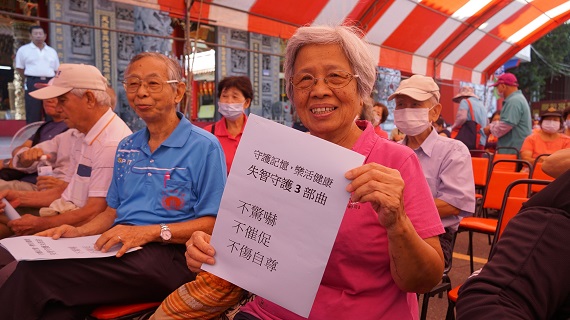 守護記憶，樂活健康
失智守護 3 部曲
不驚嚇
不催促
不傷自尊